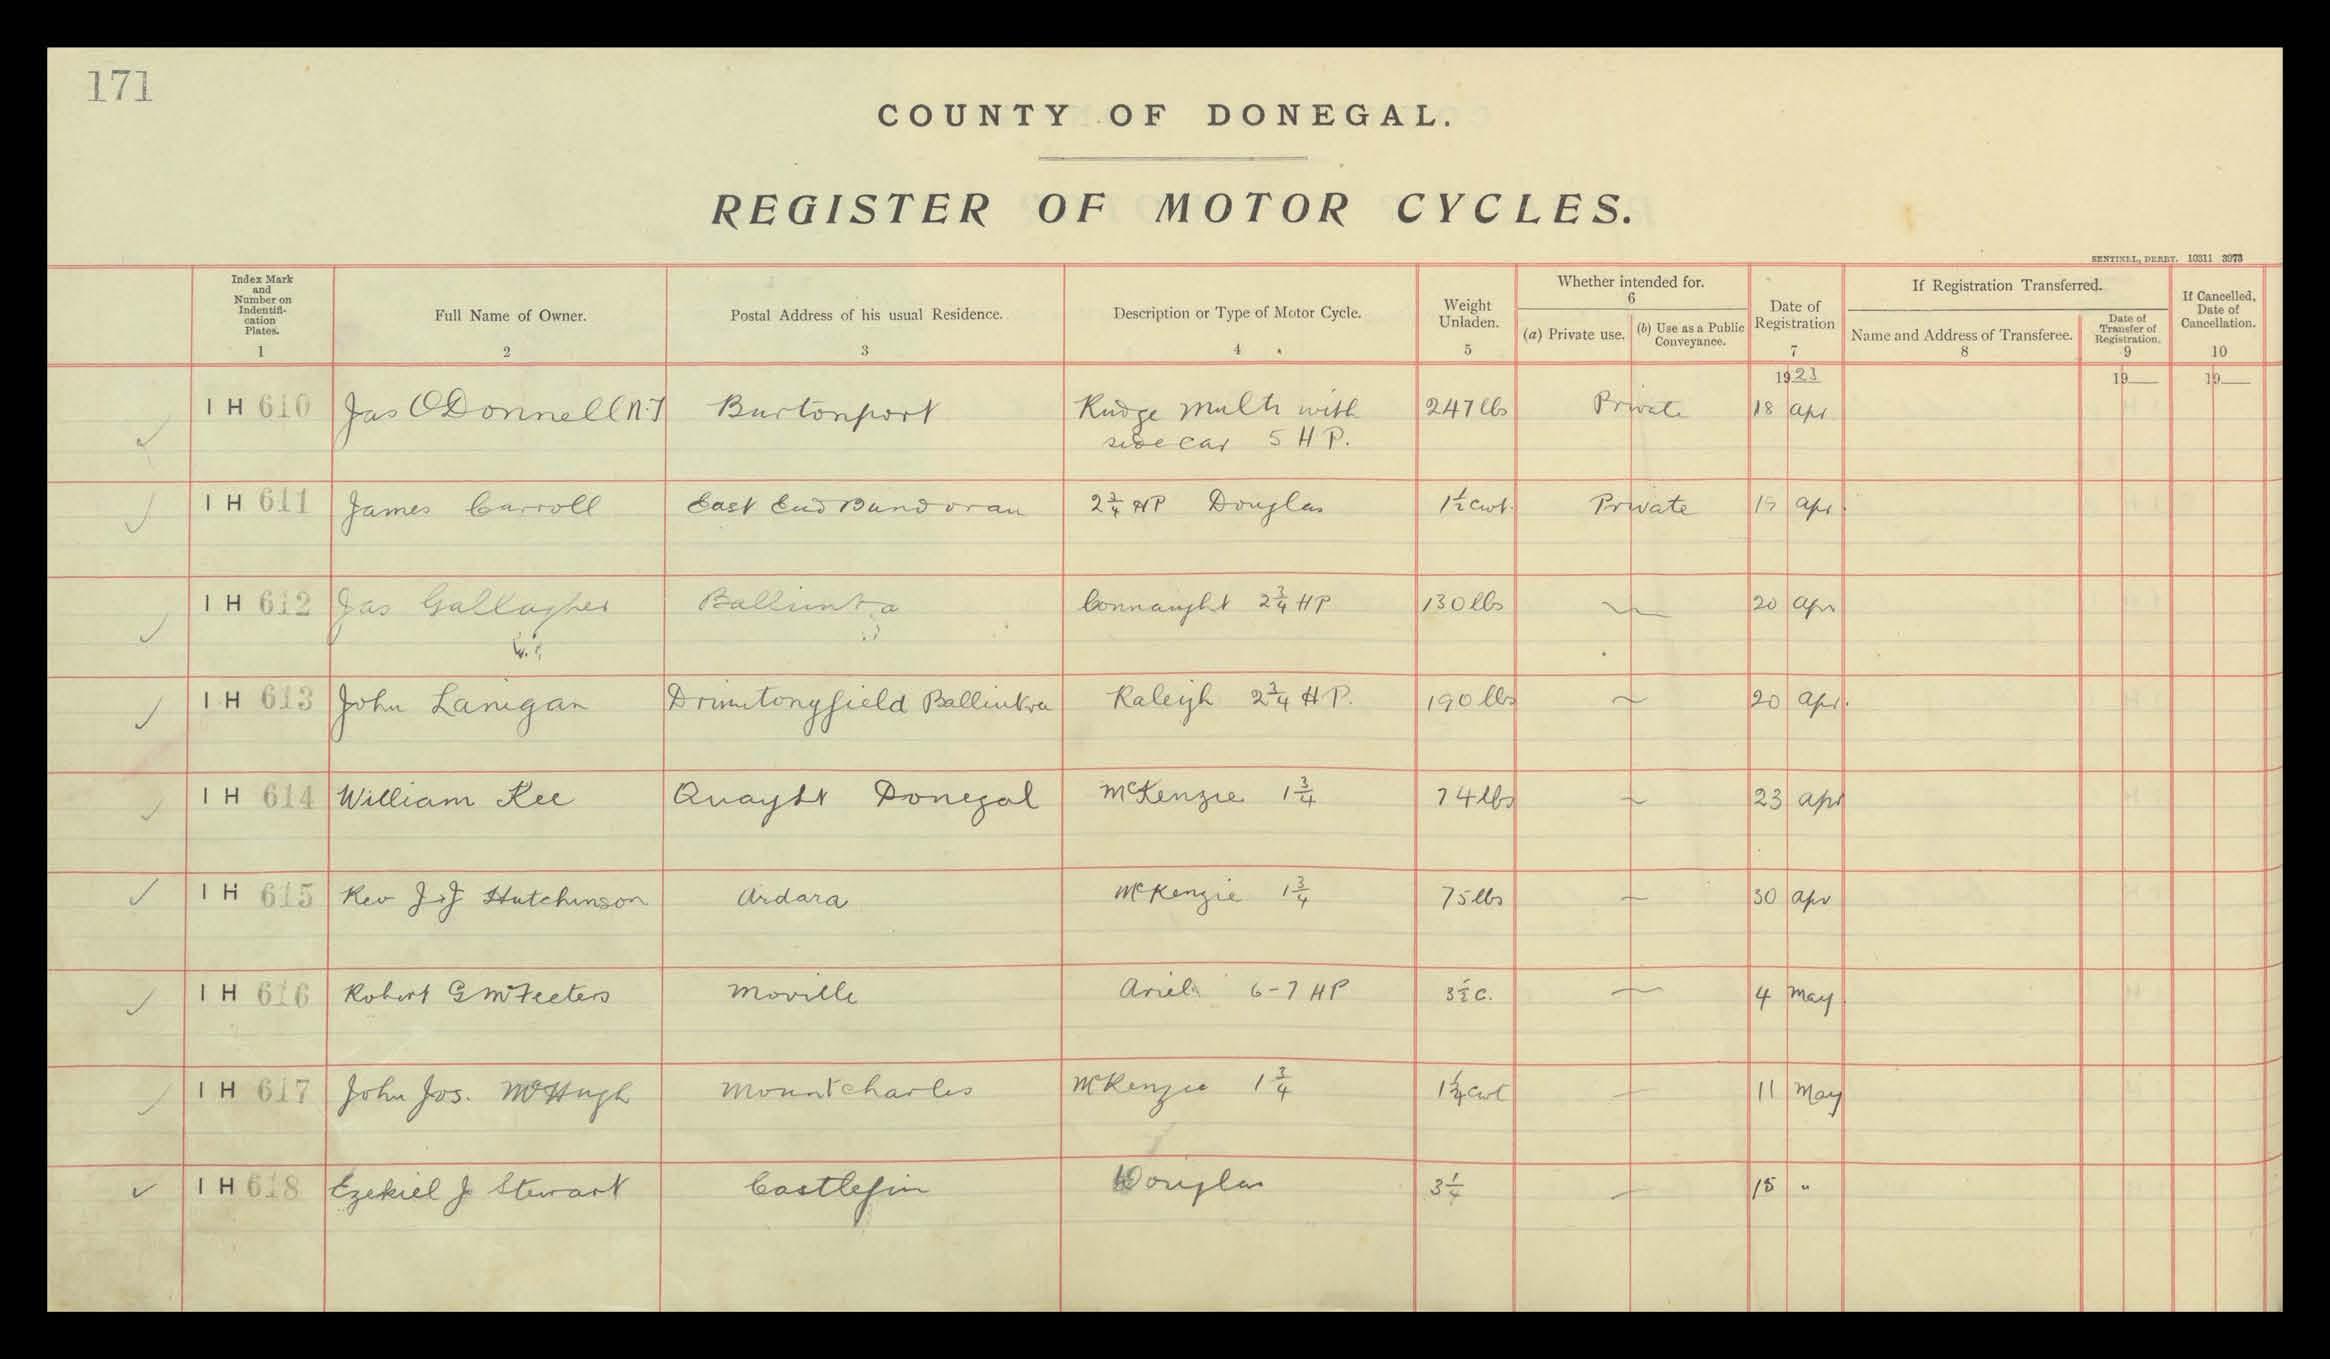 171
COUNTY OF DONEGAL.
REGISTER OF MOTOR CYCLES.
SENTINEL, DERBY. 10311 3973
Index Mark and Number on Indentifi-cation Plates. 1
Full Name of Owner. 2
Postal Address of his usual Residence. 3
Description or Type of Motor Cycle. 4
Weight Unladen. 5
Whether intended for. 6
(a) Private use.
(b) Use as a Public Conveyance.
Date of Registration 7
If Registration Transferred.
Name and Address of Transferee. 8
Date of Transfer of Registration. 9
If Cancelled, Date of Cancellation. 10
1923 19 19
IH 610 Jas O'Donnell N.T Burtonport Rudge Multi with 247 lbs Private 18 Apr
side car 5 HP.
IH 611 James Carroll East End Bundoran 2¾ HP Douglas 1½ cwt. Private Apr.
IH 612 Jas Gallagher Ballintra Connaught 2¾ HP 130 lbs 20 Apr
IH 613 John Lanigan Drimtonyfield Ballintra Raleigh 2¾ HP. 190 lbs 20 Apr.
IH 614 William Kee Donegal McKenzie 1¾ 74 lbs 23 Apr
IH 615 Rev J.J Hutchinson Ardara McKenzie 1¾ 75 lbs 30 Apr
IH 616 Robert G McFeeters Moville Ariel 6-7 HP 3½ c. 4 May
IH 617 John Jos. McHugh Mountcharles McKenzie 1¾ 1¼ cwt 11 May
IH 618 Ezekiel J Stewart Castlefin Douglas 3¼ 15 "